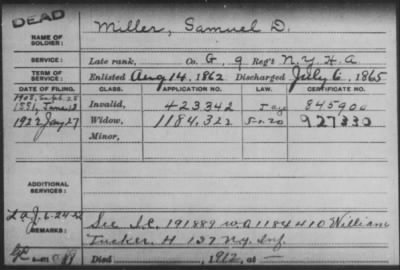 DEAD
NAME OF SOLDIER: Miller, Samuel D.
SERVICE: Late rank, Co. G, 9 Reg't N.Y. H. A.
TERM OF SERVICE: Enlisted Aug 14, 1862 Discharged July 6, 1865
DATE OF FILING. CLASS. APPLICATION NO. LAW. CERTIFICATE NO.
Invalid, 423342 845900
1922 Widow, 1184,322 927330
Minor,
ADDITIONAL SERVICES:
6-24-22 See I.C. 191889 1184410 William
REMARKS: Tucker. H 137 N.Y. Inf.
Died , 1912, at —